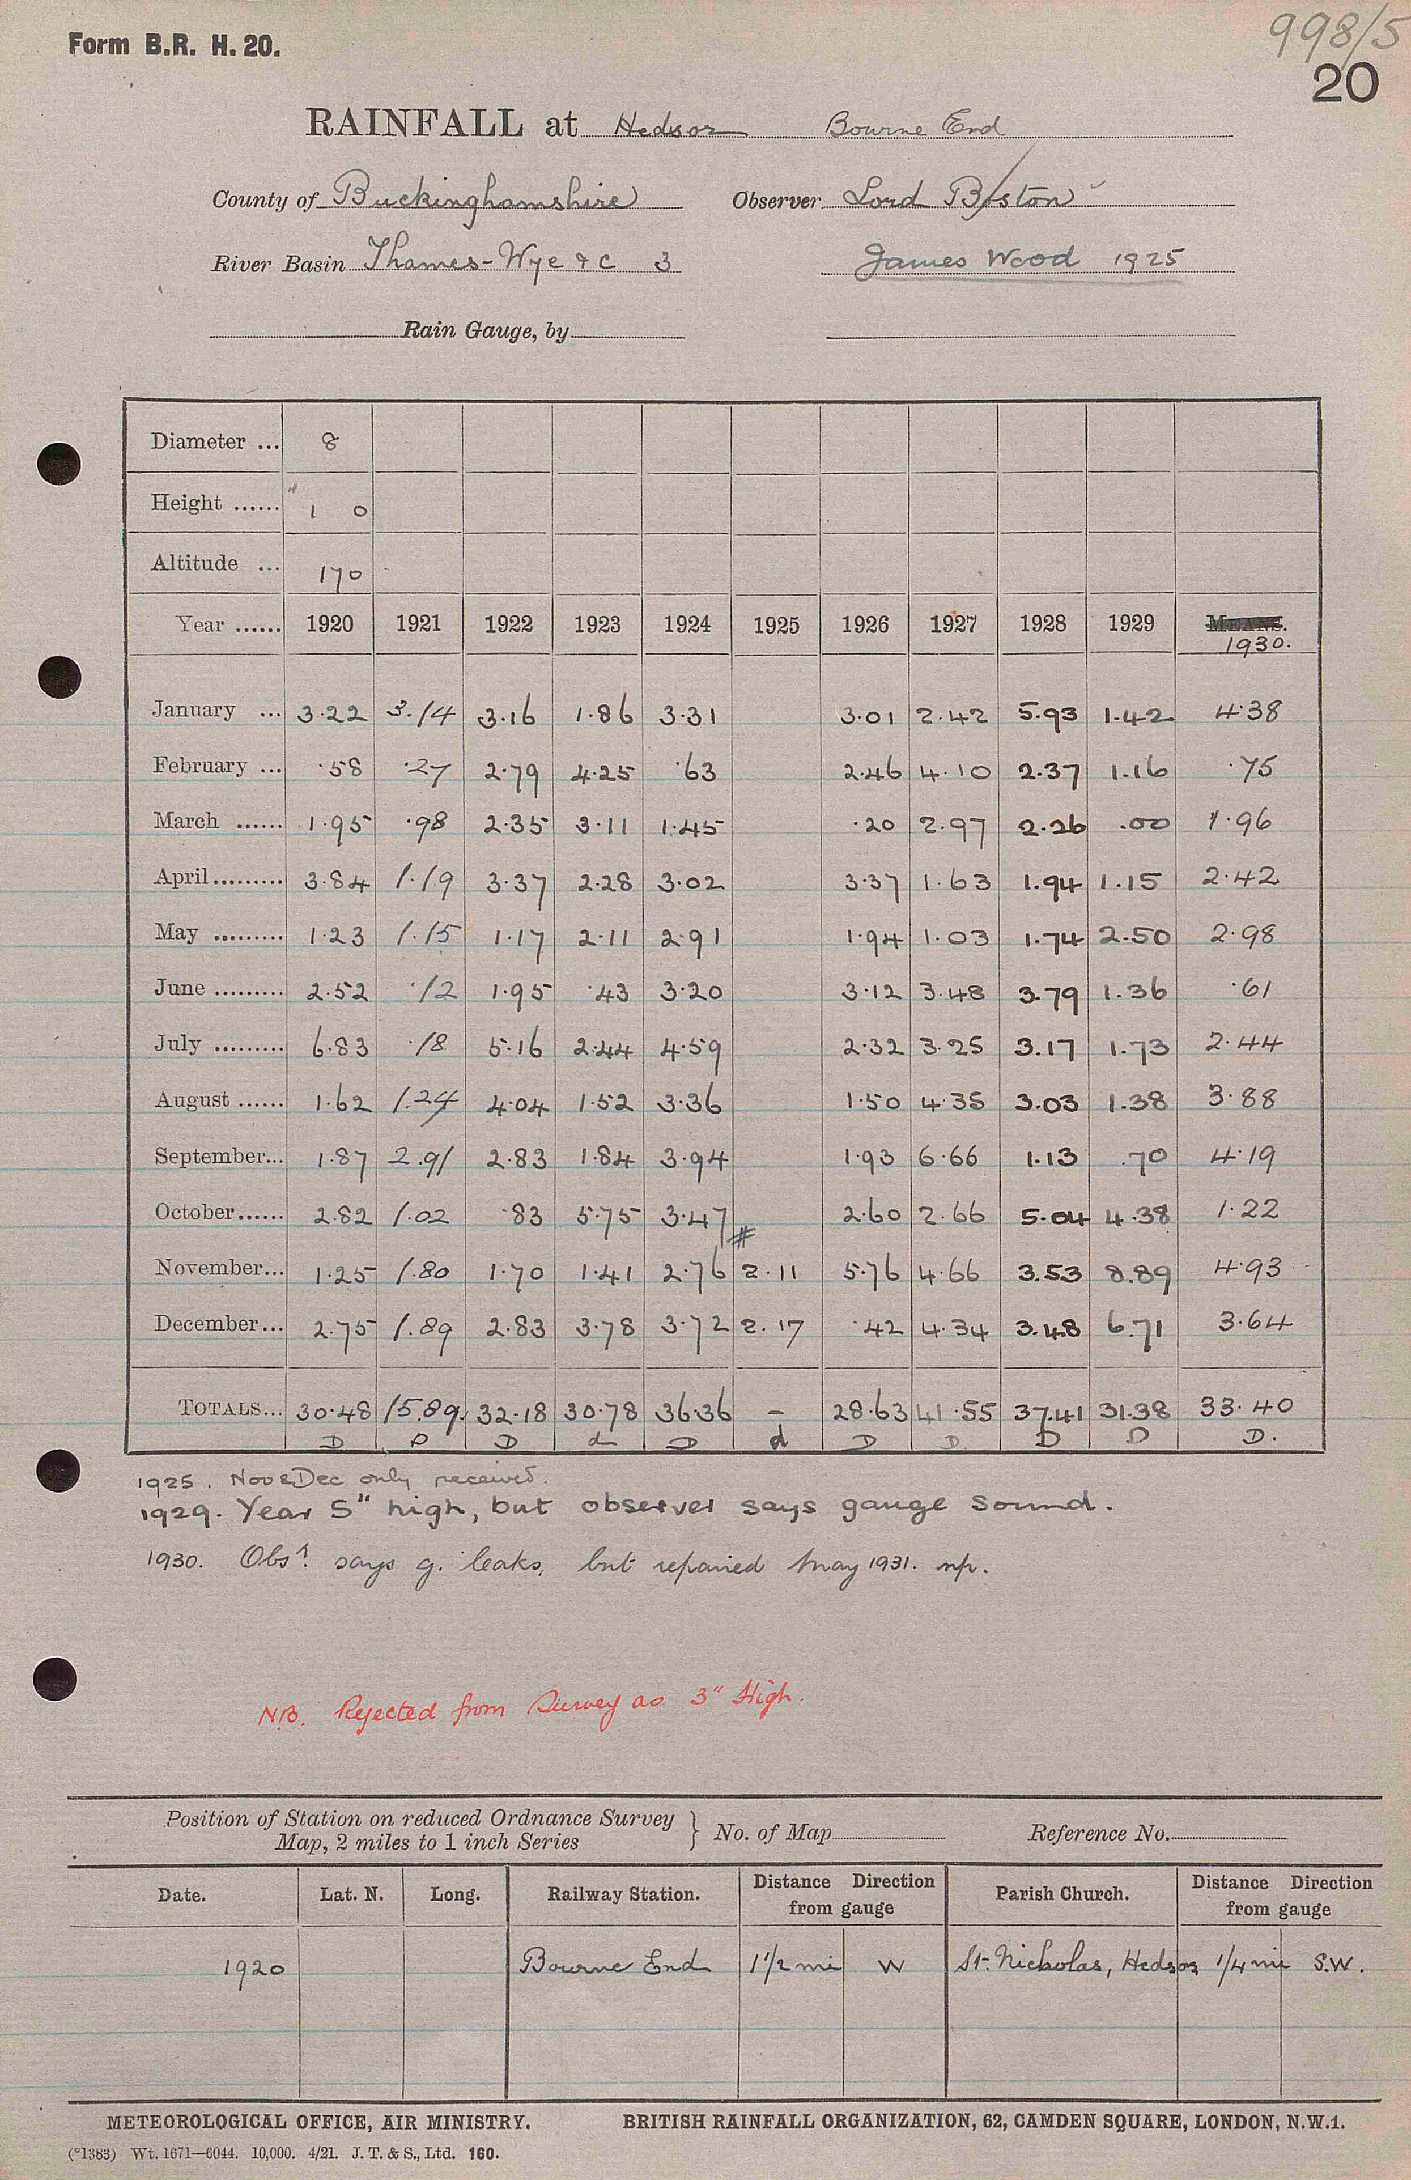 998/5
Form B.R. H. 20.
20
RAINFALL at Hedsor Bourne End
County of Buckinghamshire Observer Lord Boston
River Basin Thames-Wye & C 3 James Wood 1925
Rain Gauge, by
Diameter ... 8
Height ...... 1 0
Altitude ... 170
Year ...... 1920 1921 1922 1923 1924 1925 1926 1927 1928 1929 MEANS.
1930.
January ... 3.22 3.14 3.16 1.86 3.31 3.01 2.42 5.93 1.42 4.38
February ... .58 .27 2.79 4.25 .63 2.46 4.10 2.37 1.16 .75
March ...... 1.95 .98 2.35 3.11 1.45 .20 2.97 2.26 .00 1.96
April ......... 3.84 1.19 3.37 2.28 3.02 3.37 1.63 1.94 1.15 2.42
May ......... 1.23 1.15 1.17 2.11 2.91 1.94 1.03 1.74 2.50 2.98
June ......... 2.52 .12 1.95 .43 3.20 3.12 3.48 3.79 1.36 .61
July ......... 6.83 .18 5.16 2.44 4.59 2.32 3.25 3.17 1.73 2.44
August ...... 1.62 1.24 4.04 1.52 3.36 1.50 4.35 3.03 1.38 3.88
September... 1.87 2.91 2.83 1.84 3.94 1.93 6.66 1.13 .70 4.19
October...... 2.82 1.02 .83 5.75 3.47 # 2.60 2.66 5.04 4.38 1.22
November... 1.25 1.80 1.70 1.41 2.76 2.11 5.76 4.66 3.53 8.89 4.93
December... 2.75 1.89 2.83 3.78 3.72 2.17 .42 4.34 3.48 6.71 3.64
TOTALS... 30.48 15.89. 32.18 30.78 36.36 – 28.63 41.55 37.41 31.38 33.40
D D D d D d D D. D D D.
1925. Nov & Dec only received.
1929. Year 5" high, but observer says gauge sound.
1930. Obsr. says g. leaks, but repaired May 1931. np.
NB. Rejected from Survey as 3" High.
Position of Station on reduced Ordnance Survey
Map, 2 miles to 1 inch Series } No. of Map Reference No.
Date. Lat. N. Long. Railway Station. Distance Direction from gauge Parish Church. Distance Direction from gauge
1920 Bourne End 1 1/2 mi W St. Nicholas, Hedsor 1/4 mi S.W.
METEOROLOGICAL OFFICE, AIR MINISTRY. BRITISH RAINFALL ORGANIZATION, 62, CAMDEN SQUARE, LONDON, N.W.1.
(*1383) Wt. 1671—6044. 10,000. 4/21. J. T. & S., Ltd. 160.